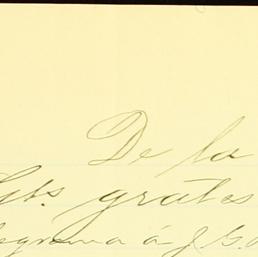 De la
Gts. grates
legrama á J. G.